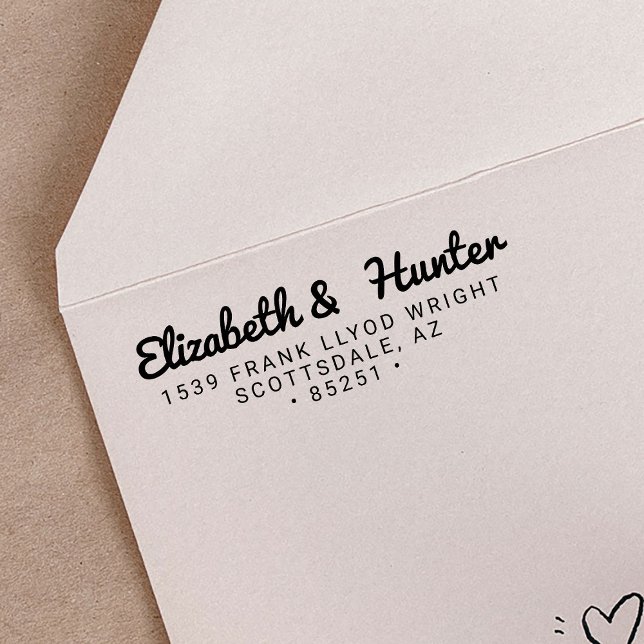 Elizabeth & Hunter
1539 FRANK LLYOD WRIGHT
SCOTTSDALE, AZ
• 85251 •